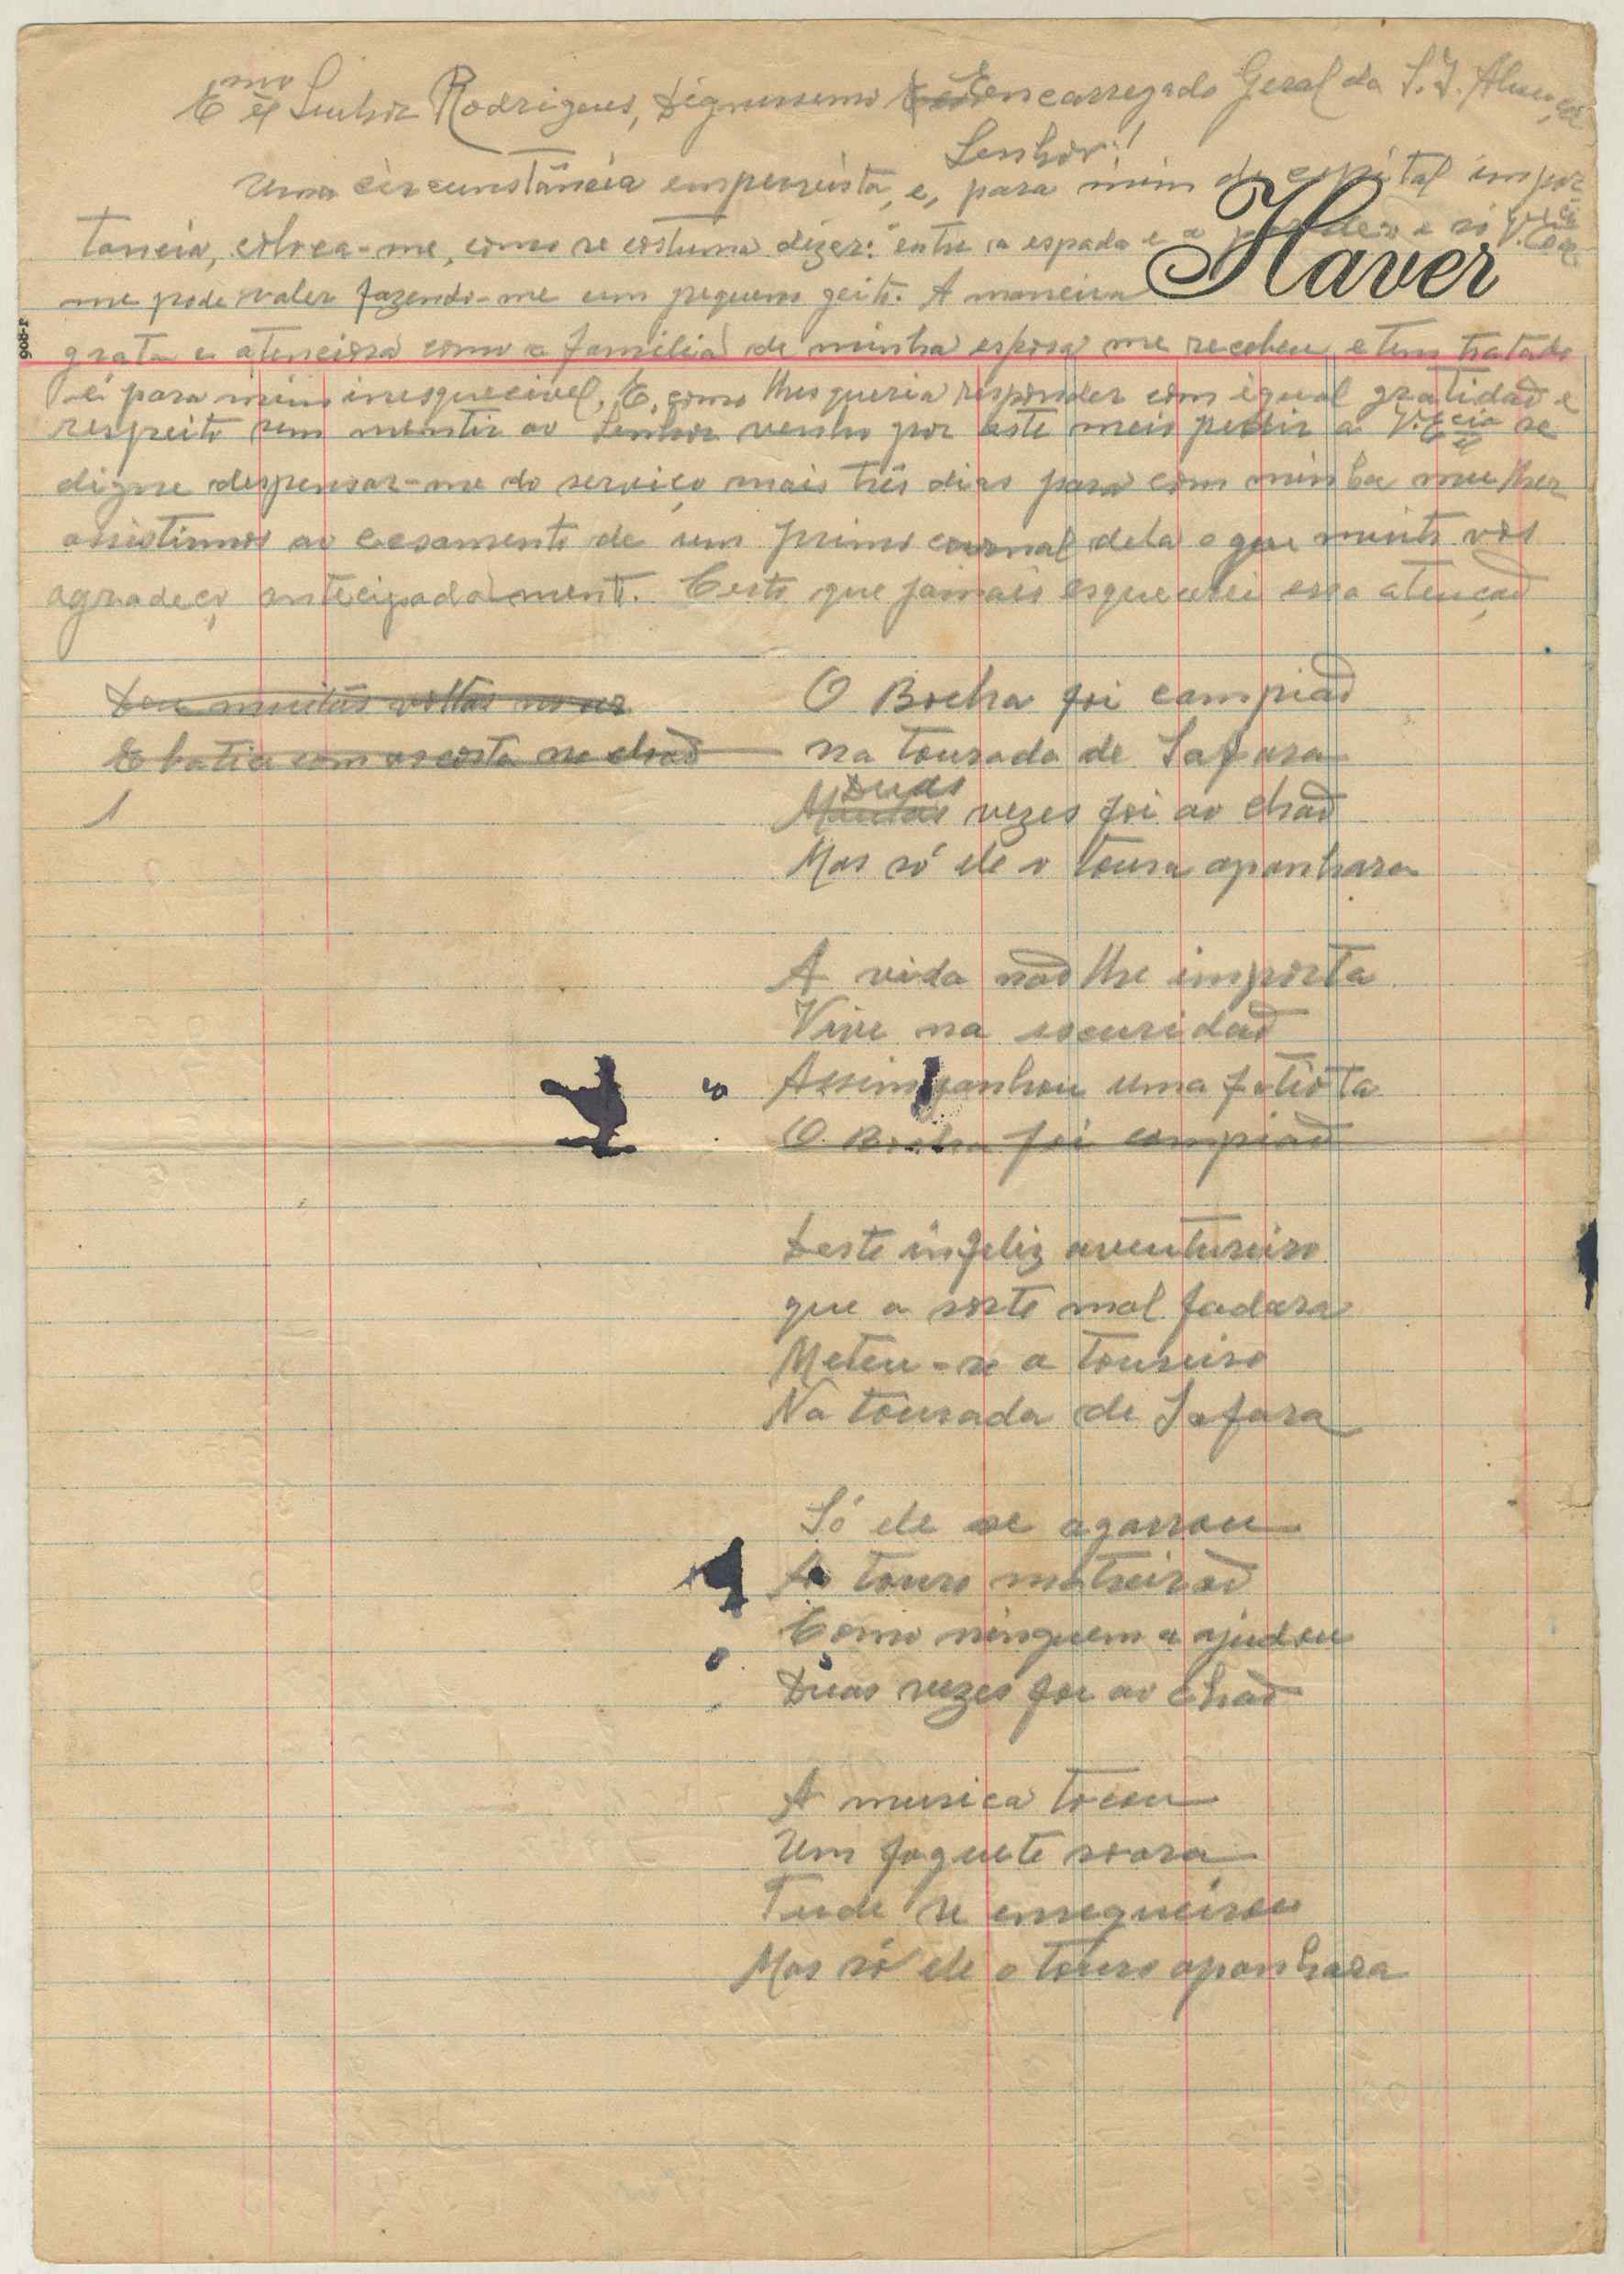 Emo Senhor Rodrigues, Dignissimo Encarregado Geral da S. J.
Senhor!
Uma circunstância emprevista, e, para mim de capital impor
tancia, coloca-me, como se costuma dizer: entre a espada e a parede e só V. Ecia
me pode valer fazendo-me um pequeno geito. A maneira
Haver
grata e atenciosa como a familia de minha esposa me recebeu e tem tratado
908-F
é para mim inesquecivel. E, como lhes queria responder com igual gratidaõ e
respeito sem mentir ao Senhor venho por este meio pedir a V. Ecia se
digne despensar-me do serviço mais três dias para com minha mulher
assistirmos ao casamento de um primo dela o que muito vos
agradeço antecipadament. Certo que jamais esquecerei essa atençaõ
Deu muitas voltas no ar
E batia com as costa no chaõ
O Bocha foi campiaõ
na tourada de Safara
Muitas Duas vezes foi ao chaõ
Mas só ele o touro apanhara
A vida naõ lhe importa
Vive na escuridaõ
Assim ganhou uma fatiota
O Bocha foi campiaõ
Deste infeliz aventureiro
que a sorte mal fadara
Meteu-se a toureiro
Na tourada de Safara
Só ele se agarrou
Ao touro matreiraõ
Como ninguem o ajudou
Duas vezes foi ao chaõ
A musica tocou
Um foguete soara
Tude se
Mas só ele o touro apanhara